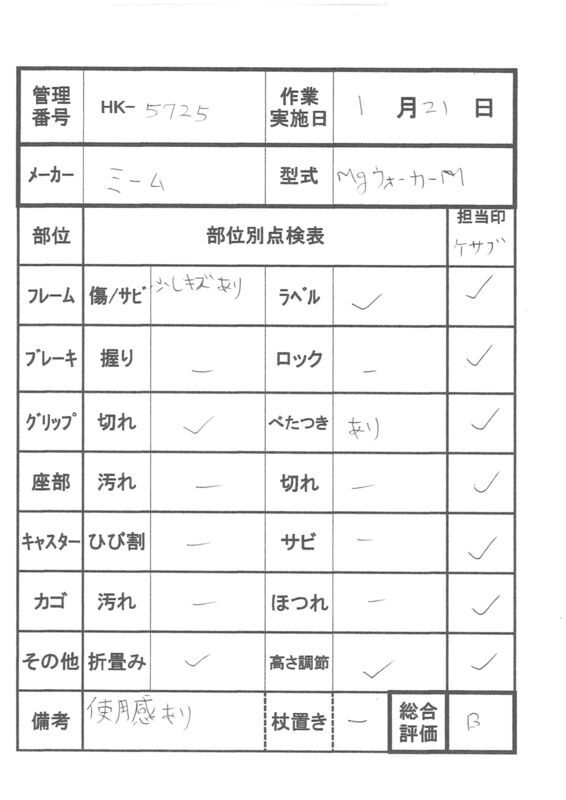 管理番号 HK- 5725 作業実施日 1 月 21 日
メーカー ミーム 型式 MgウォーカーM
部位 部位別点検表 担当印 ケサブ
フレーム 傷/サビ 少しキズあり ラベル ✓ ✓
ブレーキ 握り ― ロック ― ✓
グリップ 切れ ✓ べたつき あり ✓
座部 汚れ ― 切れ ― ✓
キャスター ひび割 ― サビ ― ✓
カゴ 汚れ ― ほつれ ― ✓
その他 折畳み ✓ 高さ調節 ✓ ✓
備考 使用感あり 杖置き ― 総合評価 B